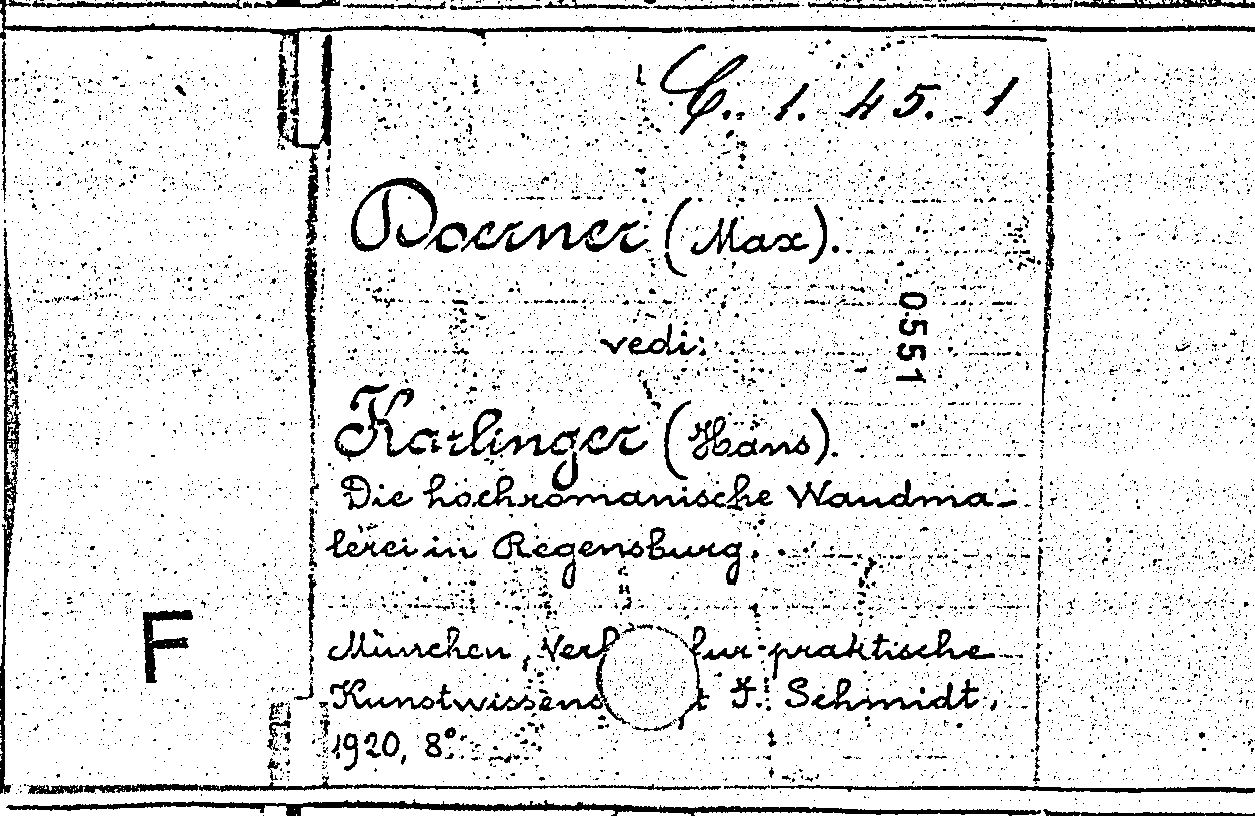 C. 1. 45. 1
Doerner (Max).
0551
vedi:
Karlinger (Hans).
Die hochromanische Wandma-
lerei in Regensburg.
F
München, Verl für praktische
Kunstwissens t F. Schmidt,
1920, 8°.